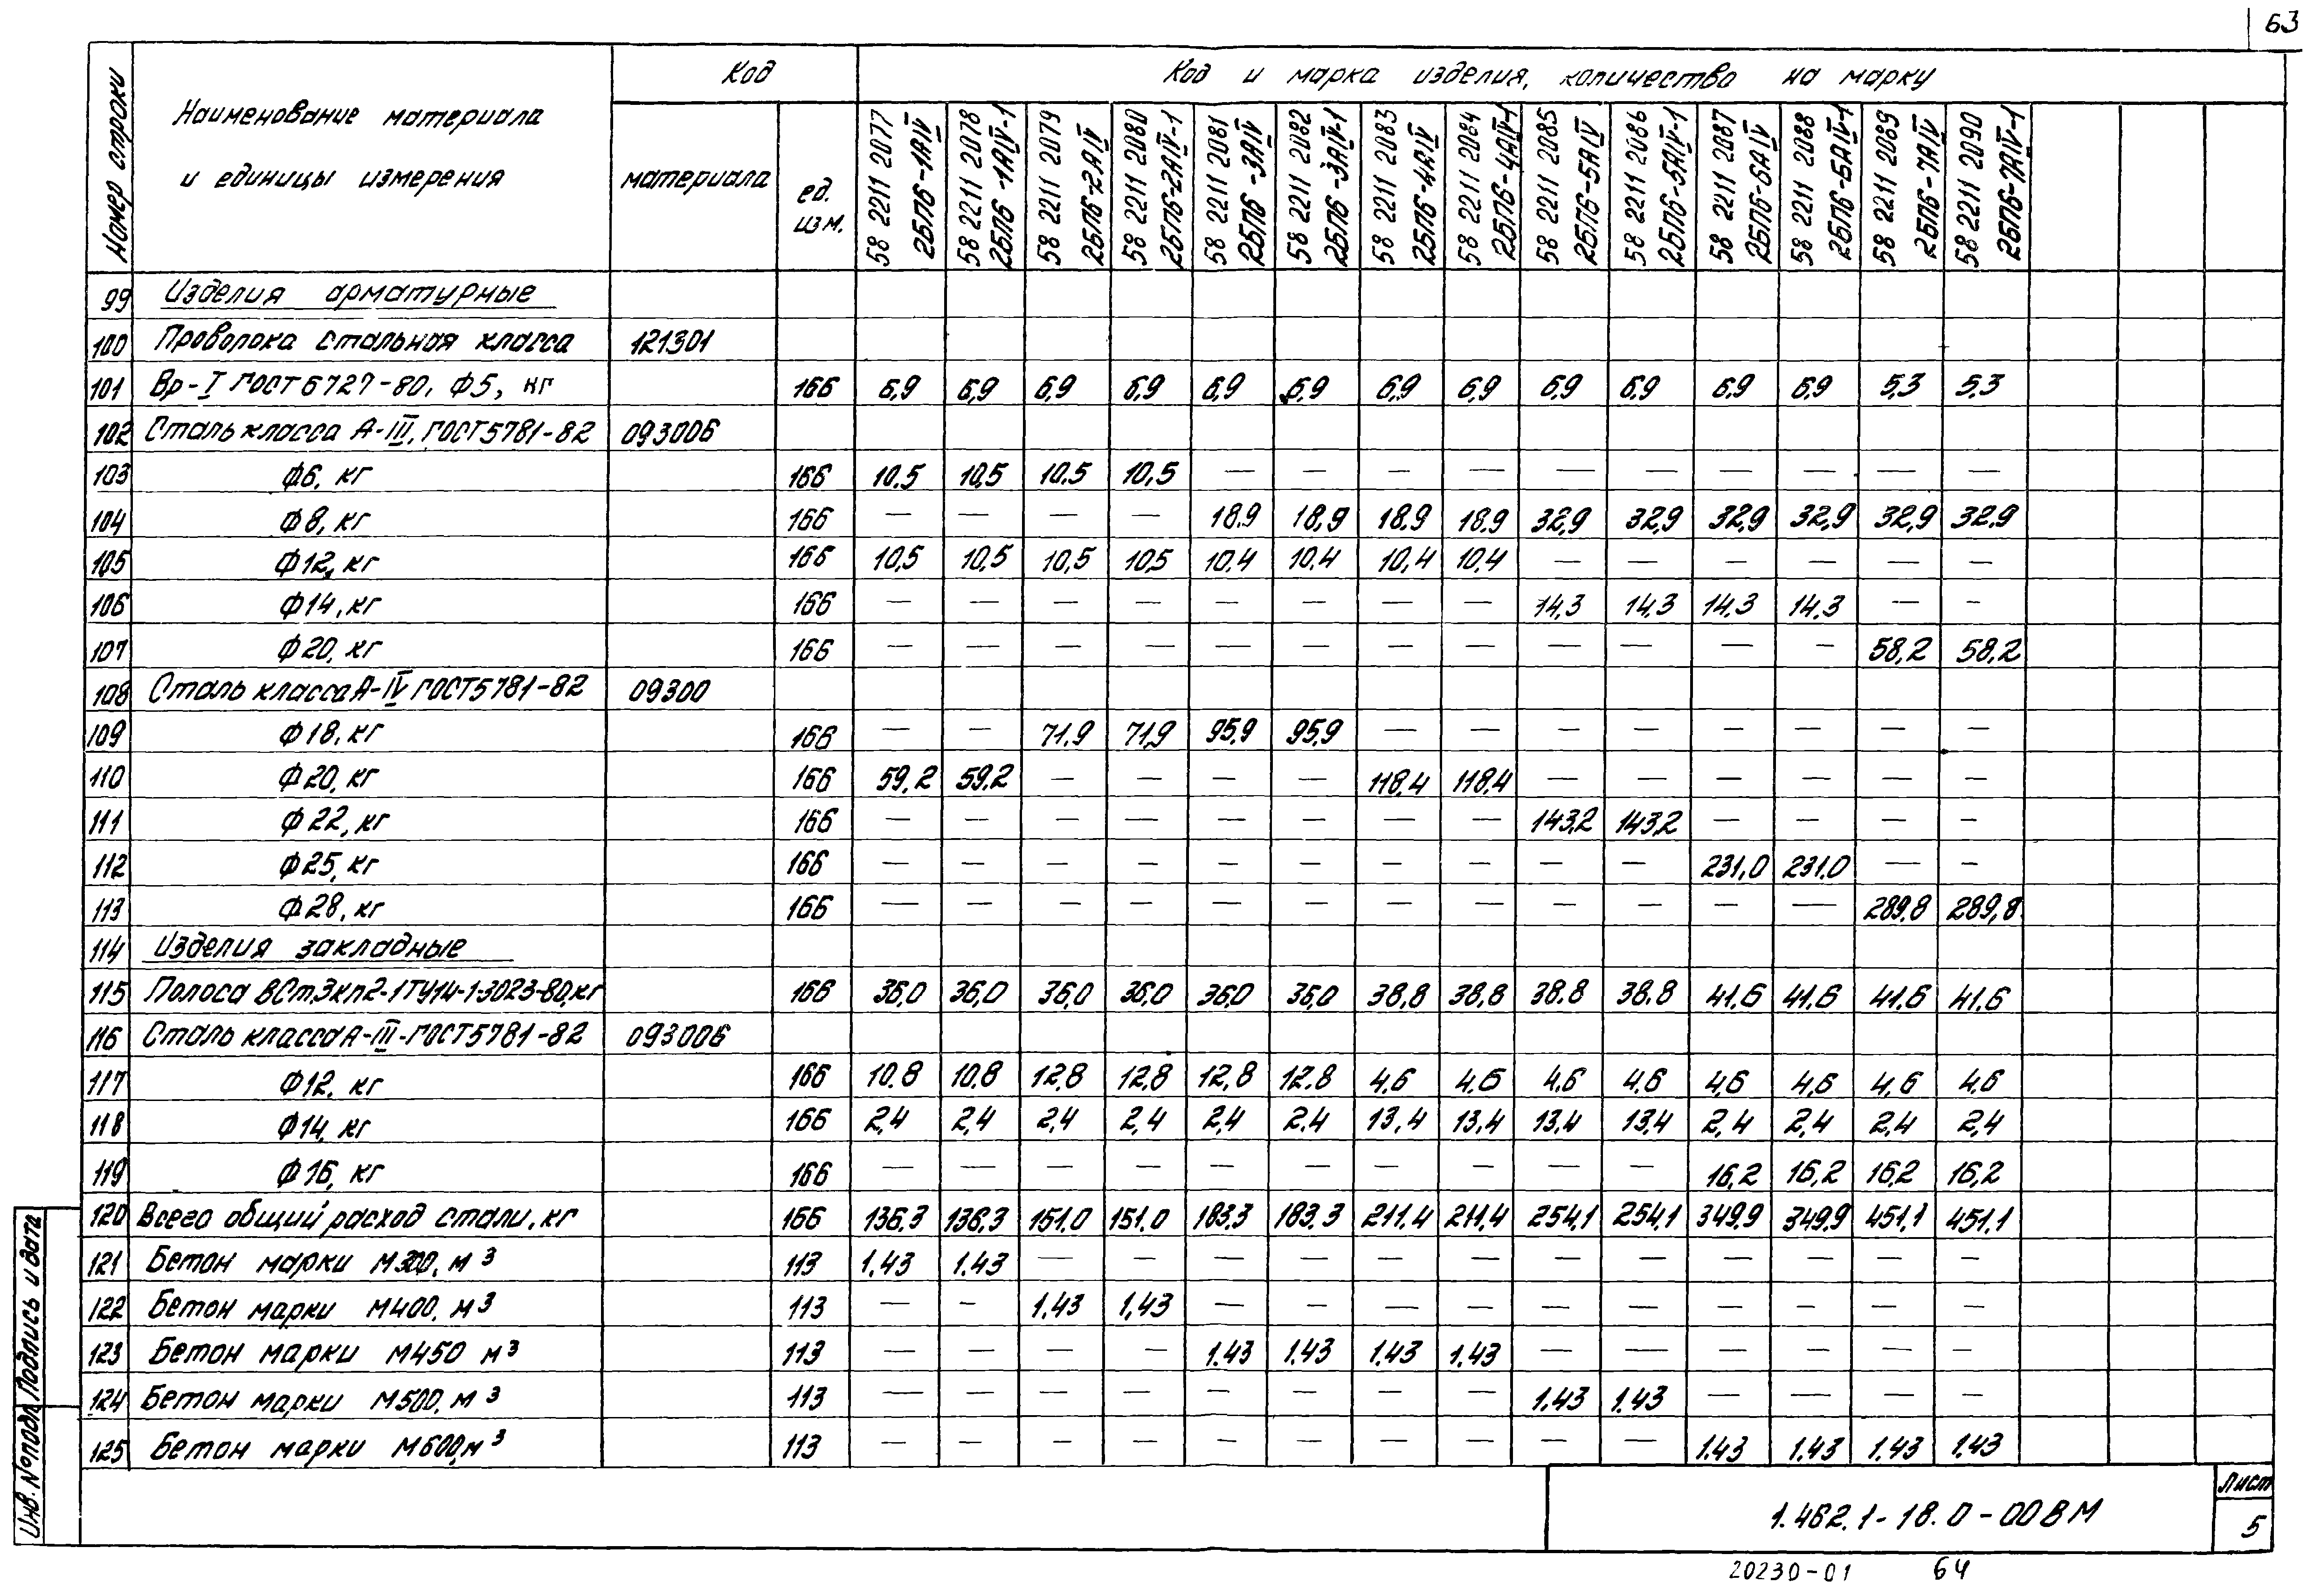 63
Номер строки
Наименование материала
и единицы измерения
Код
материала
ед. изм.
Код и марка изделия, количество на марку
58 2211 2077 2БП6-1АIV
58 2211 2078 2БП6-1АIV-1
58 2211 2079 2БП6-2АIV
58 2211 2080 2БП6-2АIV-1
58 2211 2081 2БП6-3АIV
58 2211 2082 2БП6-3АIV-1
58 2211 2083 2БП6-4АIV
58 2211 2084 2БП6-4АIV-1
58 2211 2085 2БП6-5АIV
58 2211 2086 2БП6-5АIV-1
58 2211 2087 2БП6-6АIV
58 2211 2088 2БП6-6АIV-1
58 2211 2089 2БП6-7АIV
58 2211 2090 2БП6-7АIV-1
99 Изделия арматурные
100 Проволока стальная класса 121301
101 Вр-I ГОСТ 6727-80, Ф5, кг 166 6,9 6,9 6,9 6,9 6,9 6,9 6,9 6,9 6,9 6,9 6,9 6,9 5,3 5,3
102 Сталь класса А-III, ГОСТ 5781-82 093006
103 Ф6, кг 166 10.5 10,5 10.5 10,5 — — — — — — — — — —
104 Ф8, кг 166 — — — — 18.9 18,9 18.9 18.9 32,9 32,9 32,9 32,9 32,9 32.9
105 Ф12, кг 166 10,5 10,5 10,5 10,5 10.4 10.4 10,4 10.4 — — — — — —
106 Ф14, кг 166 — — — — — — — — 14,3 14,3 14,3 14,3 — —
107 Ф20, кг 166 — — — — — — — — — — — — 58,2 58,2
108 Сталь класса А-IV ГОСТ 5781-82 09300
109 Ф18, кг 166 — — 71.9 71,9 95,9 95,9 — — — — — — — —
110 Ф20, кг 166 59,2 59,2 — — — — 118,4 118,4 — — — — — —
111 Ф22, кг 166 — — — — — — — — 143,2 143,2 — — — —
112 Ф25, кг 166 — — — — — — — — — — 231,0 231,0 — —
113 Ф28, кг 166 — — — — — — — — — — — — 289,8 289,8
114 Изделия закладные
115 Полоса ВСт.3кп2-1ТУ14-1-3023-80,кг 166 36,0 36,0 36,0 36,0 36,0 36,0 38,8 38,8 38.8 38.8 41.6 41.6 41.6 41.6
116 Сталь класса А-III-ГОСТ 5781-82 093006
117 Ф12, кг 166 10.8 10,8 12,8 12,8 12,8 12.8 4,6 4,6 4,6 4,6 4,6 4,6 4,6 4,6
118 Ф14, кг 166 2,4 2,4 2,4 2,4 2,4 2.4 13,4 13,4 13,4 13,4 2,4 2,4 2,4 2,4
119 Ф16, кг 166 — — — — — — — — — — 16,2 16,2 16,2 16,2
120 Всего общий расход стали, кг 166 136,3 136,3 151.0 151.0 183,3 183.3 211.4 211.4 254,1 254,1 349,9 349,9 451,1 451.1
121 Бетон марки М300, м³ 113 1.43 1.43 — — — — — — — — — — — —
122 Бетон марки М400, м³ 113 — — 1.43 1,43 — — — — — — — — — —
123 Бетон марки М450 м³ 113 — — — — 1.43 1.43 1.43 1.43 — — — — — —
124 Бетон марки М500, м³ 113 — — — — — — — — 1.43 1.43 — — — —
125 Бетон марки М600, м³ 113 — — — — — — — — — — 1.43 1.43 1.43 1.43
Инв. № подл. Подпись и дата
1.462.1-18.0-00 ВМ
Лист
5
20230-01 64